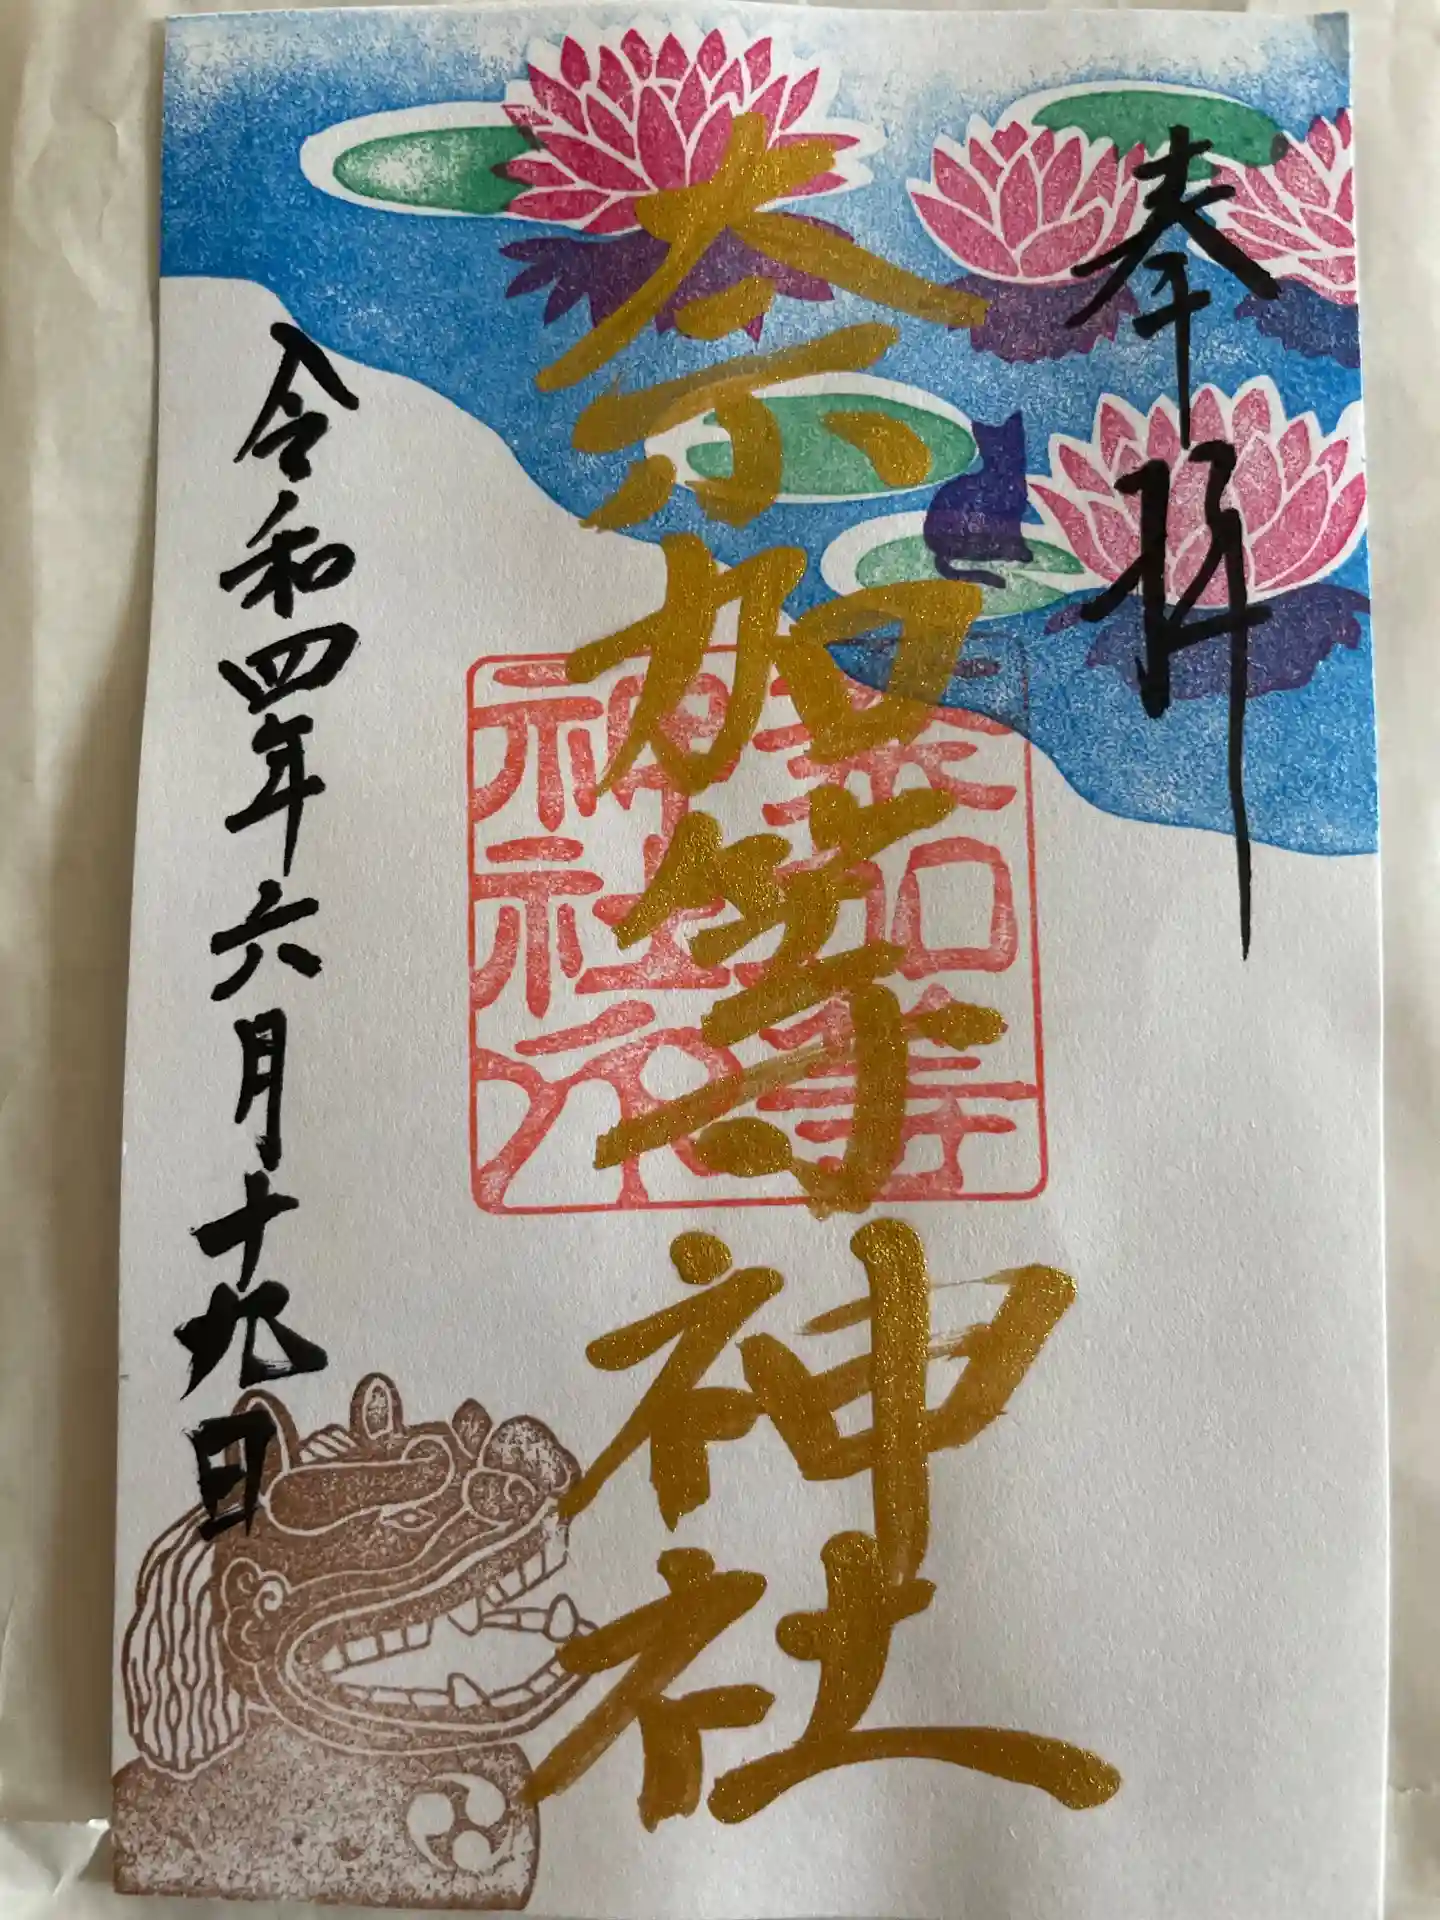 奉拝
奈加等神社
奈加等
神社之印
令和四年六月十九日